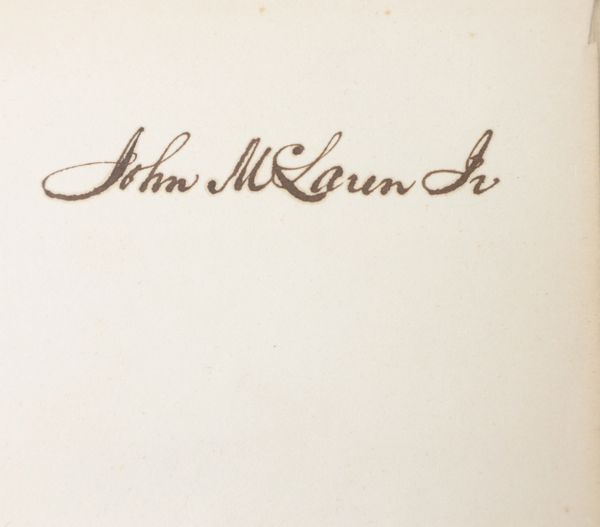 John McLaren Jr